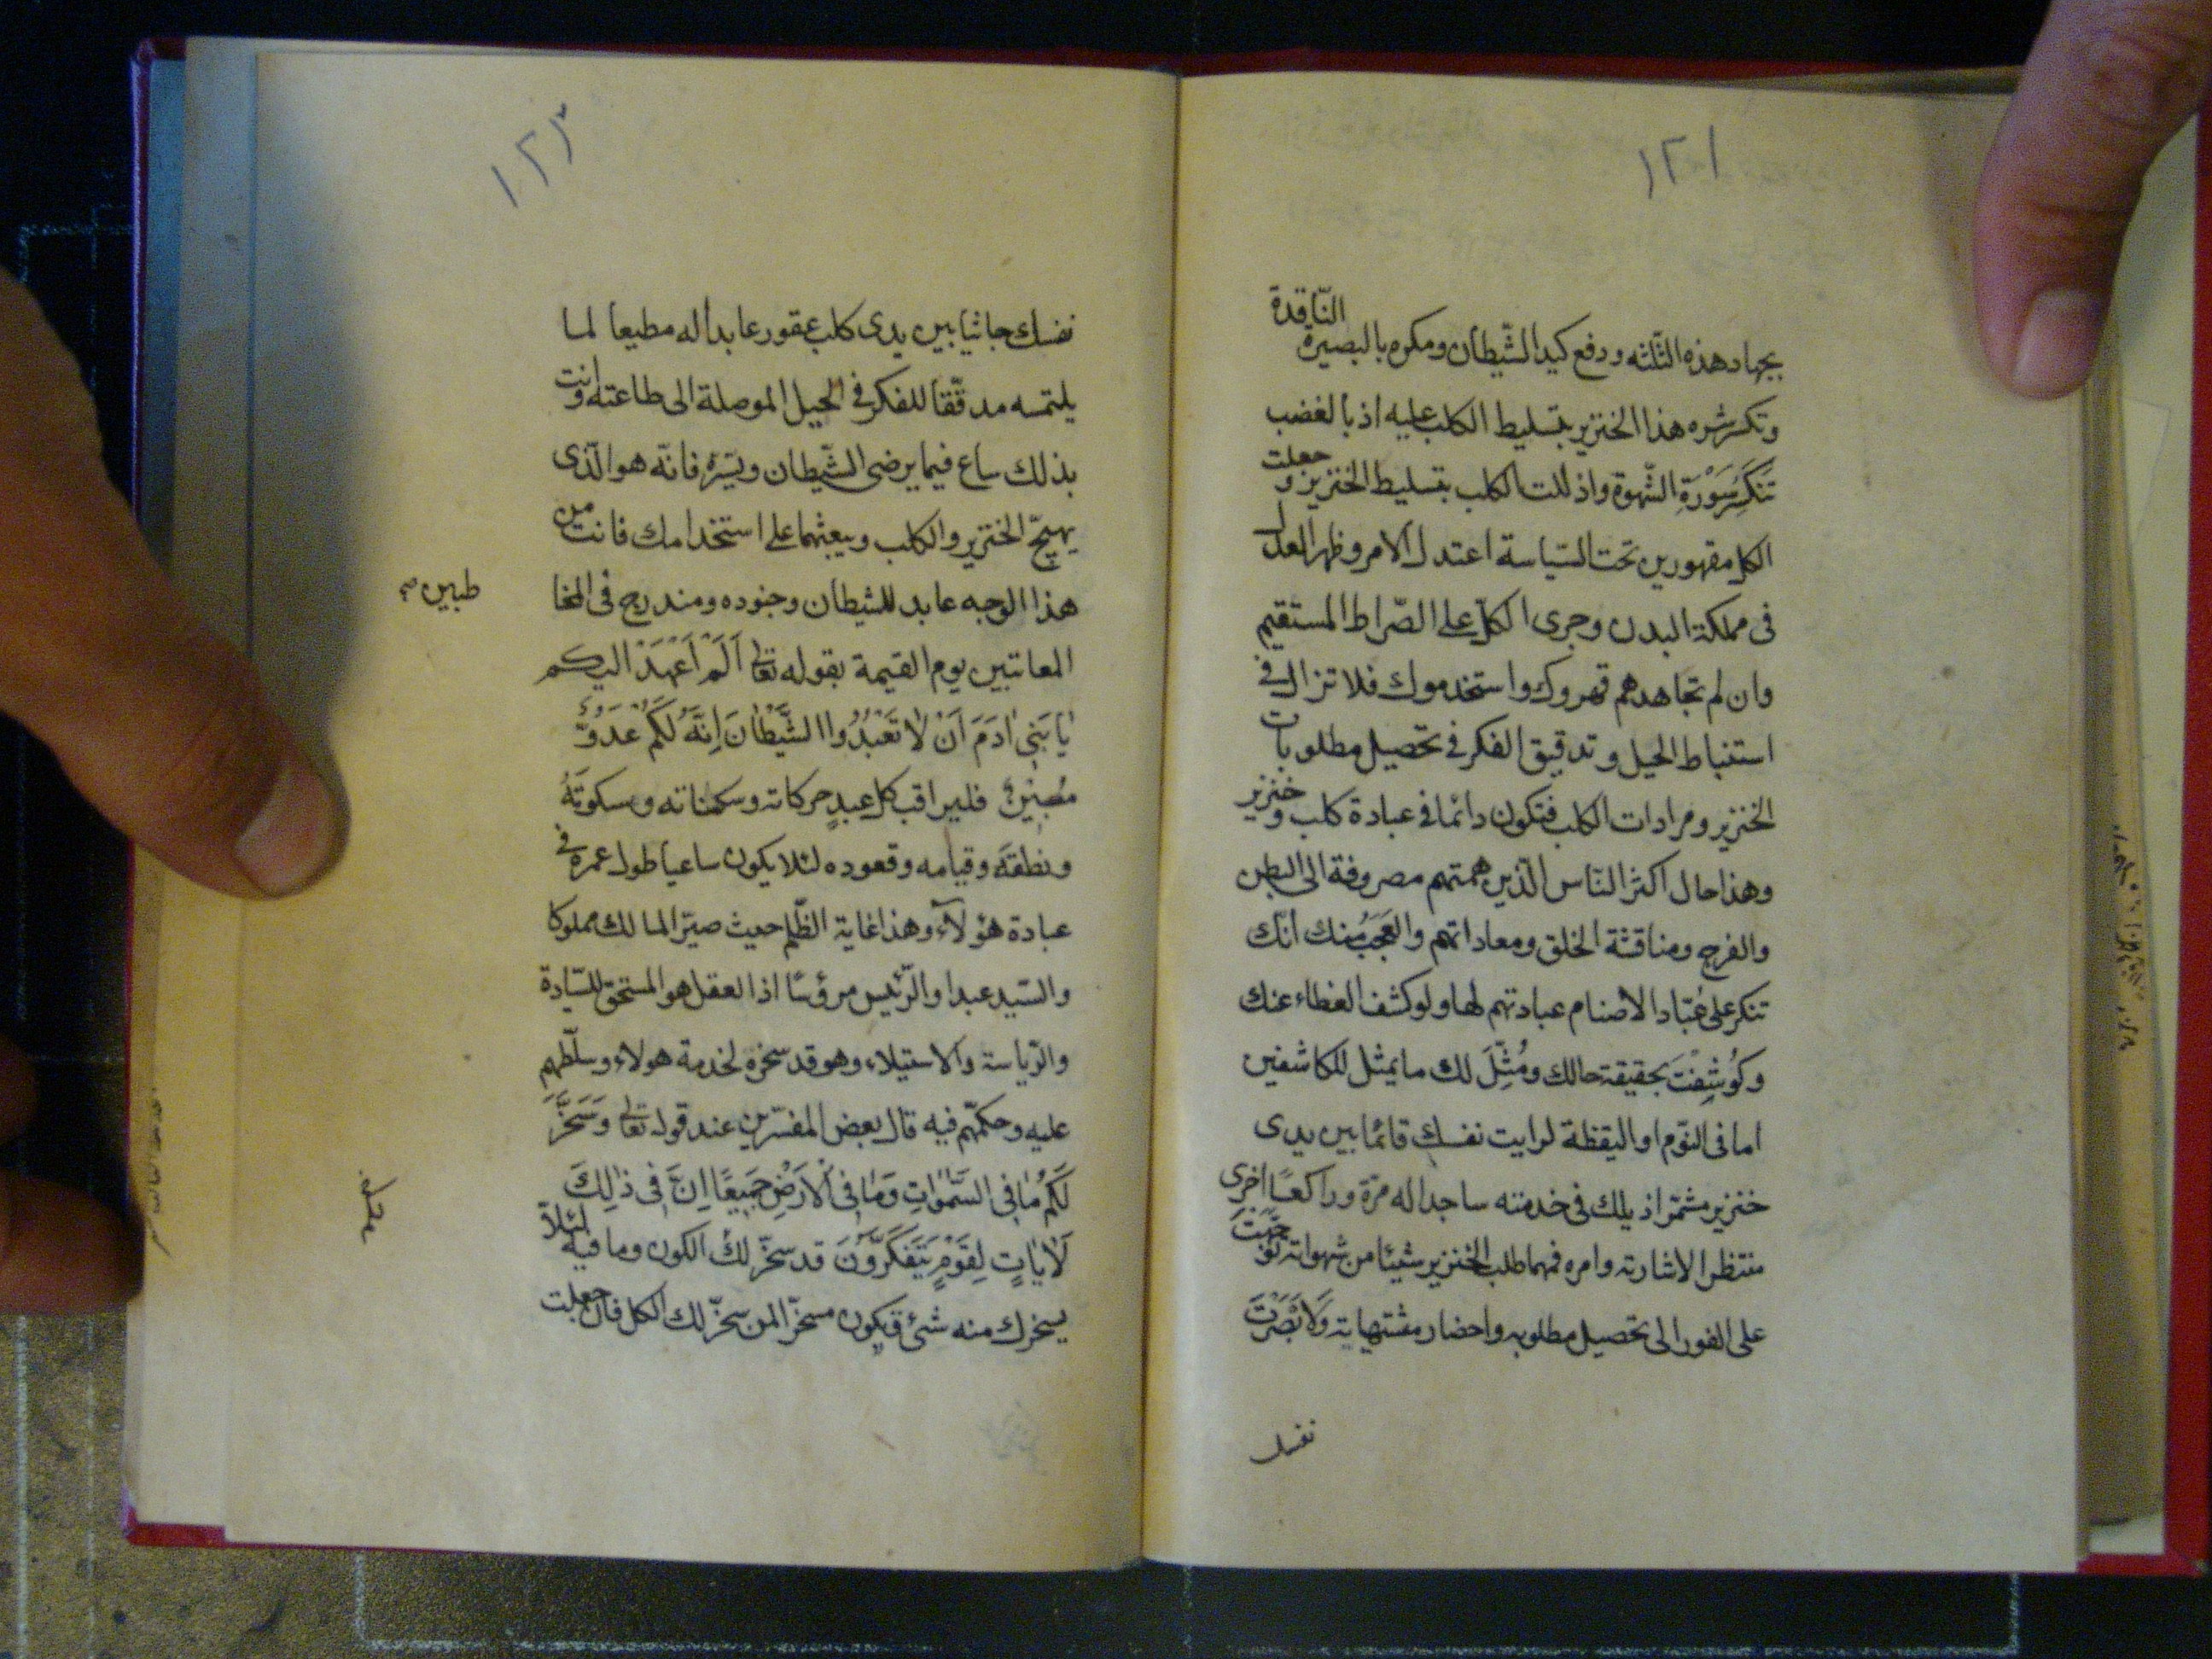 ١٢١
بجهاد هذه الثلثه ودفع كيد الشّيطان ومكره بالبصيرة النّاقدة
وتكسر شره هذا الخنزير بتسليط الكلب عليه اذ بالغضب
تَنكَسِرُ سَوْرَةِ الشّهوة واذللت الكلب بتسليط الخنزير وجعلت
الكل مقهورين تحت السّياسة اعتدل الامر وظهر العدل
فى مملكة البدن وجرى الكلّ على الصّراط المستقيم
وان لم تجاهدهم قهروك واستخدموك فلا تزال فى
استنباط الحيل وتدقيق الفكر فى تحصيل مطلوبات
الخنزير ومرادات الكلب فتكون دائما فى عبادة كلب وخنزير
وهذا حال اكثر النّاس الّذين همتهم مصروفة الى البطن
والفرج ومناقشة الخلق ومعاداتهم والعَجَبُ منك انّك
تنكر على عُبّاد الاصنام عبادتهم لها ولو كشف الغطاء عنك
وكُوشِفْتَ بحقيقة حالك ومُثِّلَ لك ما يمثل للكاشفين
اما فى النّوم او اليقظة لرايت نفسك قائما بين يدى
خنزير مشمّرا ذيلك فى خدمته ساجدا له مرّة وراكعًا اخرى
منتظرا لاشارته وامره فمهما طلب الخنزير شيئا من شهواته توجّهت
على الفور الى تحصيل مطلوبه واحضار مشتهياته ولابَْصَرْتَ
نفسك
١٢٢
نفسك جاثيا بين يدى كلب عقور عابدا له مطيعا لما
يلتمسه مدقّقا للفكر فى الحيل الموصلة الى طاعته وانت
بذلك ساع فيما يرضى الشّيطان ويسرّه فانّه هو الّذى
يهيّج الخنزير والكلب ويبعثهما على استخدامك فانت من
هذا الوجه عابد للشيطان وجنوده ومندرج فى المخا
طبين
المعاتبين يوم القيمة بقوله تعالى اَلَمْ اَعْهَدْ اليكم
يٰا بَنِى اٰدَمَ اَنْ لاٰ تَعْبُدُوا الشَّيْطٰانَ اِنَّهُ لَكُمْ عَدُوٌّ
مُبِينٌ فليراقب كل عبدٍ حركاته وسكناته وسكوتَهُ
ونطقَهُ وقيامه وقعوده لئلا يكون ساعيا طول عمره فى
عبادة هؤلآء وهذا غاية الظّلم حيث صيّر المالك مملوكا
والسّيد عبدا والرّئيس مرؤسًا اذا العقل هو المستحق للسّيادة
والرّياسة والاستيلاء وهو قد سخّره لخدمة هولاء وسلّطهم
عليه وحكّمهم فيه قال بعض المفسّرين عند قوله تعالى وَسَخَّرَ
لَكُمْ مٰا فِى السَّمٰوٰاتِ وَمٰا فِى الْاَرْضِ جَمِيعًا اِنَّ فِى ذٰلِكَ
لَاٰيٰاتٍ لِقَوْمٍ يَتَفَكَّرُونَ قد سخّر لك الكون وما فيه لئلاّ
يسخرك منه شئ فتكون مسخّرا لمن سخّر لك الكل فان جعلت